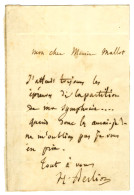 mon cher Monsieur Mallot
J'attends toujours les
épreuves de la partition
de ma Symphonie...
quand donc les aurai-je?
ne m'oubliez pas je vous
en prie.
Tout à vous
H. Berlioz